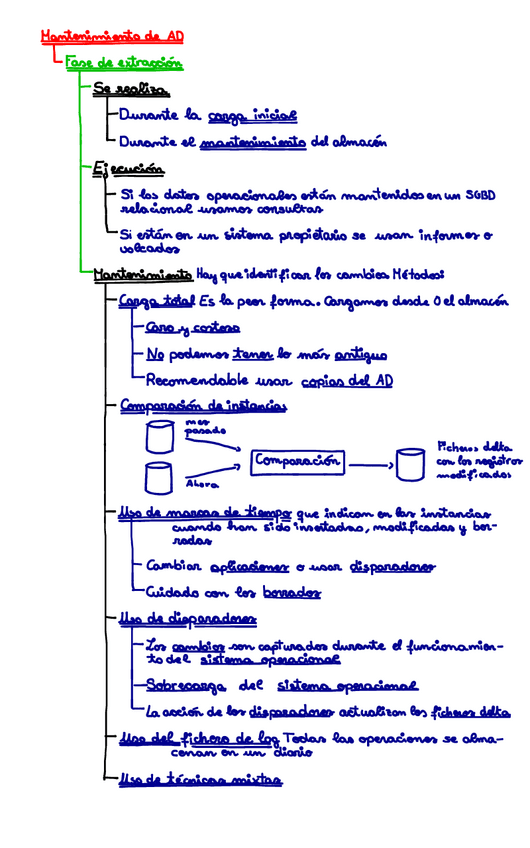 Mantenimiento de AD
Fase de extracción
Se realiza
Durante la carga inicial
Durante el mantenimiento del almacén
Ejecución
Si los datos operacionales están mantenidos en un SGBD
relacional usamos consultas
Si están en un sistema propietario se usan informes o
volcados
Mantenimiento Hay que identificar los cambios Métodos:
Carga total Es la peor forma. Cargamos desde 0 el almacén
Caro y costoso
No podemos tener lo más antiguo
Recomendable usar copias del AD
Comparación de instancias
mes
pasado
Ahora
Comparación
Ficheros delta
con los registros
modificados
Uso de marcas de tiempo que indican en las instancias
cuando han sido insertadas, modificadas y bor-
radas
Cambiar aplicaciones o usar disparadores
Cuidado con los borrados
Uso de disparadores
Los cambios son capturados durante el funcionamien-
to del sistema operacional
Sobrecarga del sistema operacional
La acción de los disparadores actualizan los ficheros delta
Uso del fichero de log Todas las operaciones se alma-
cenan en un diario
Uso de técnicas mixtas